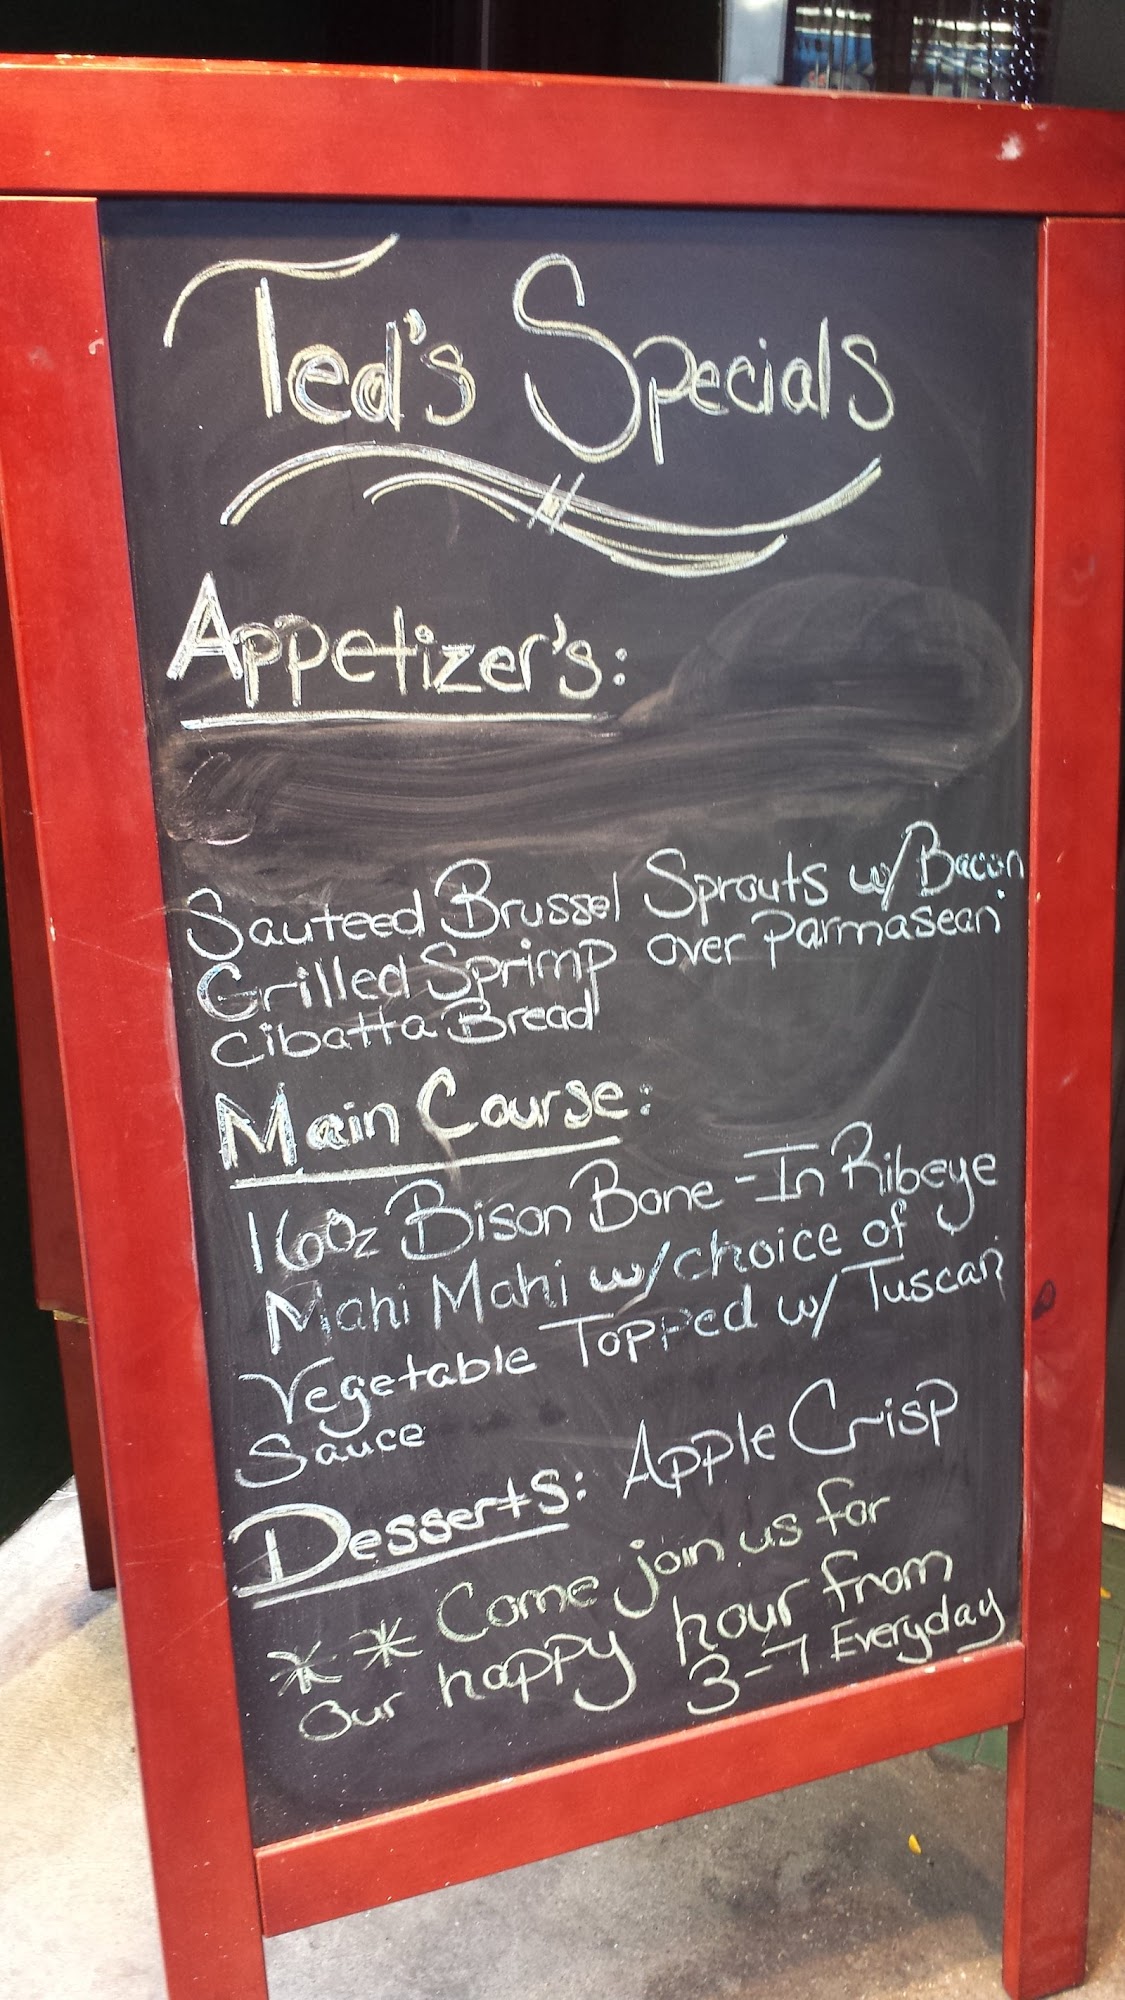 Ted's Specials
Appetizer's:
Sauteed Brussel Sprouts w/ Bacon
Grilled Sprimp over Parmasean
Cibatta Bread
Main Course:
16oz Bison Bone-In Ribeye
Mahi Mahi w/ choice of
Vegetable Topped w/ Tuscan
Sauce
Desserts: Apple Crisp
** Come join us for
our happy hour from
3-7 Everyday